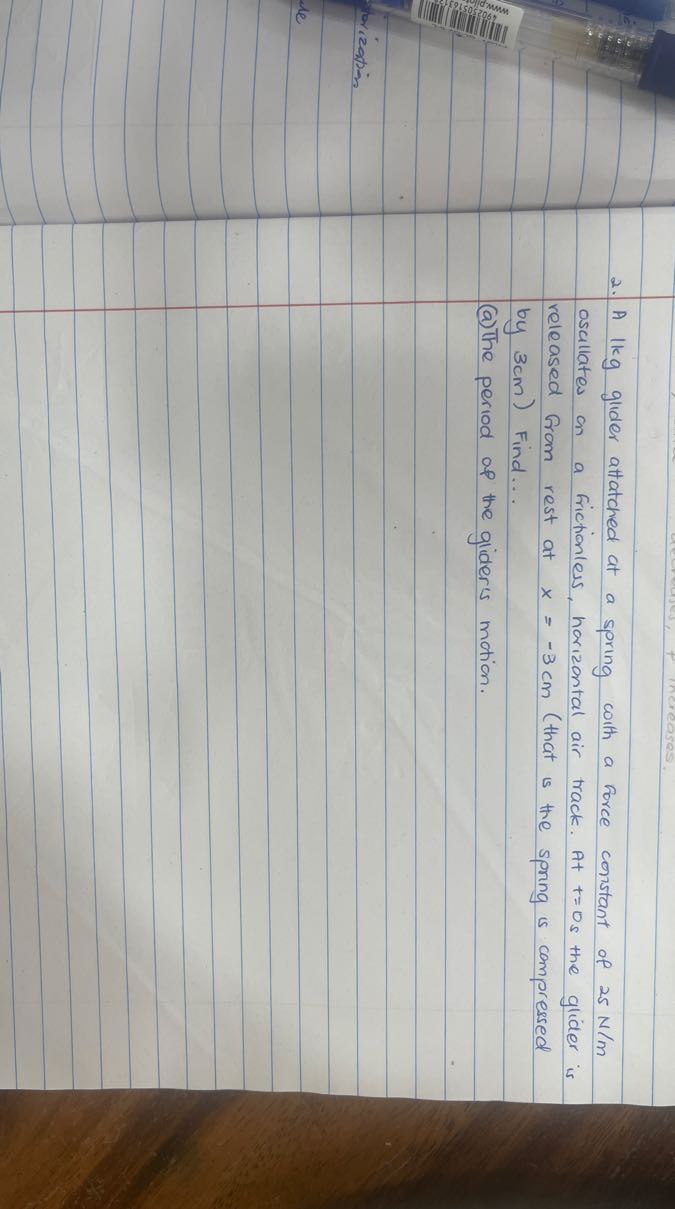 2. A 1kg glider attatched at a spring with a force constant of 25 N/m
oscillates on a frictionless, horizontal air track. At t=0s the glider is
released from rest at x = -3cm (that is the spring is compressed
by 3cm) Find...
(a) The period of the glider's motion.
increases.